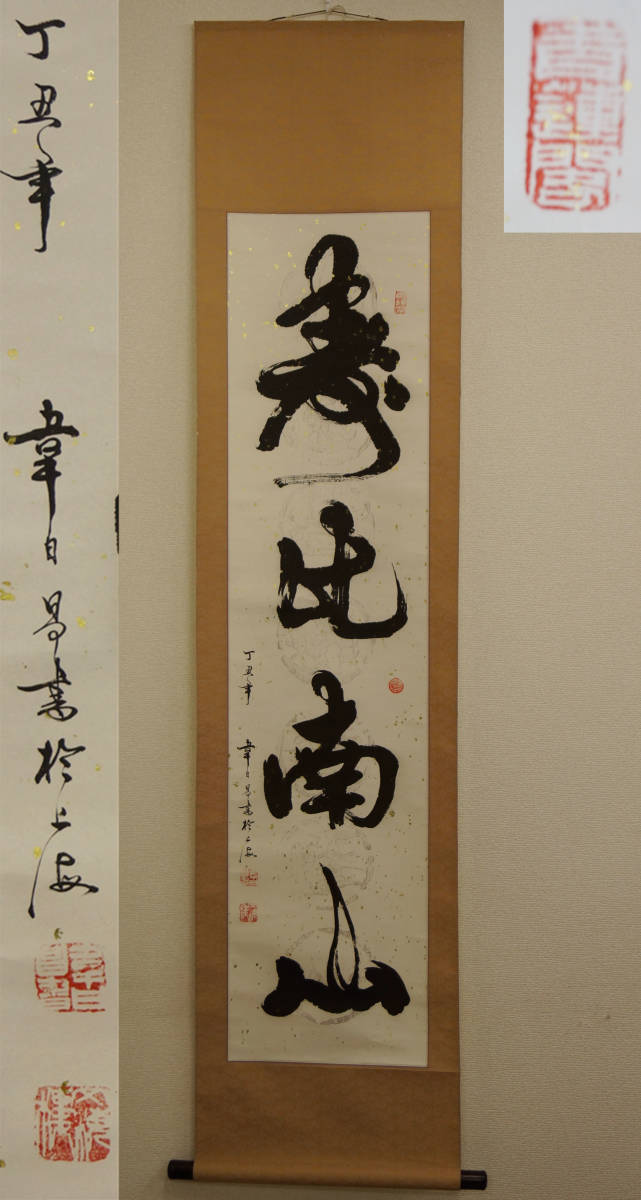 壽比南山
丁丑年 韋日昌書於上海
丁丑年 韋日昌書於上海